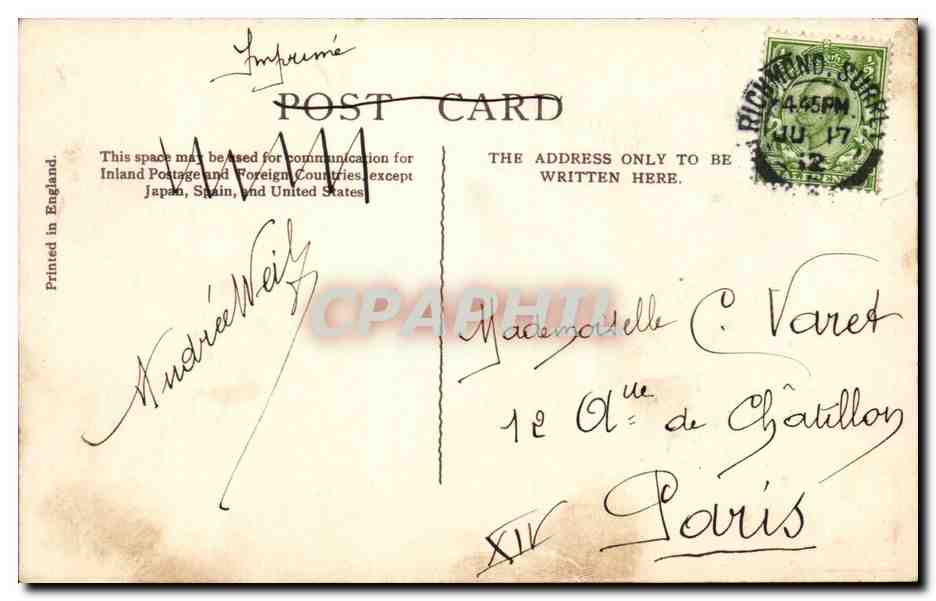 Imprimé
POST CARD
This space may be used for communication for
Inland Postage and Foreign Countries, except
Japan, Spain, and United States
THE ADDRESS ONLY TO BE
WRITTEN HERE.
RICHMOND. SURREY
4.45PM
JU 17
12
Printed in England.
Andrée Weil
CPAPHIL
Mademoiselle C. Varet
12 Aque de Châtillon
XIV Paris